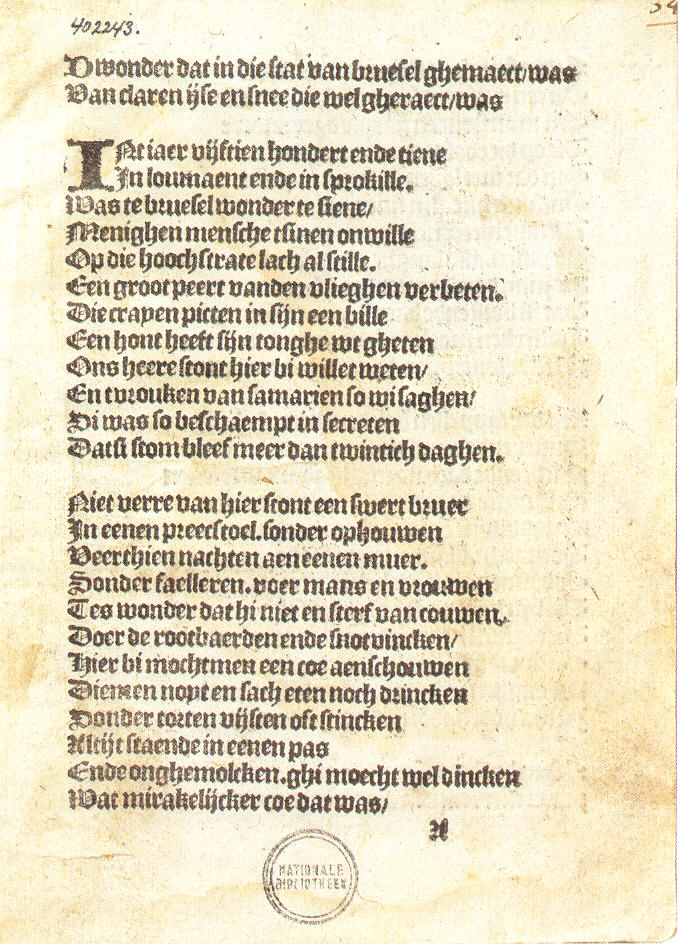 402243.
34
Dwonder dat in die stat van bruesel ghemaect/was
Van claren ijse en snee die wel gheraect/was
INt iaer vijftien hondert ende tiene
In loumaent ende in sprokille.
Was te bruesel wonder te siene/
Menighen mensche tsinen onwille
Op die hoochstrate lach al stille.
Een groot peert vanden vlieghen verbeten.
Die crayen picten in sijn een bille
Een hont heeft sijn tonghe wt gheten
Ons heere stont hier bi willet weten/
En tvrouken van samarien so wi saghen/
Di was so beschaempt in secreten
Datsi stom bleef meer dan twintich daghen.
Niet verre van hier stont een swert bruer
In eenen preecstoel. sonder ophouwen
Veerthien nachten aen eenen muer.
Sonder faelleren. voer mans en vrouwen
Tes wonder dat hi niet en sterf van couwen.
Doer de rootbaerden ende snotvincken/
Hier bi mochtmen een coe aenschouwen
Diemen noyt en sach eten noch drincken
Sonder torten vijsten oft stincken
Altijt staende in eenen pas
Ende onghemolcken. ghi moecht wel dincken
Wat mirakelijcker coe dat was/
A
NATIONALE
BIBLIOTHEEK